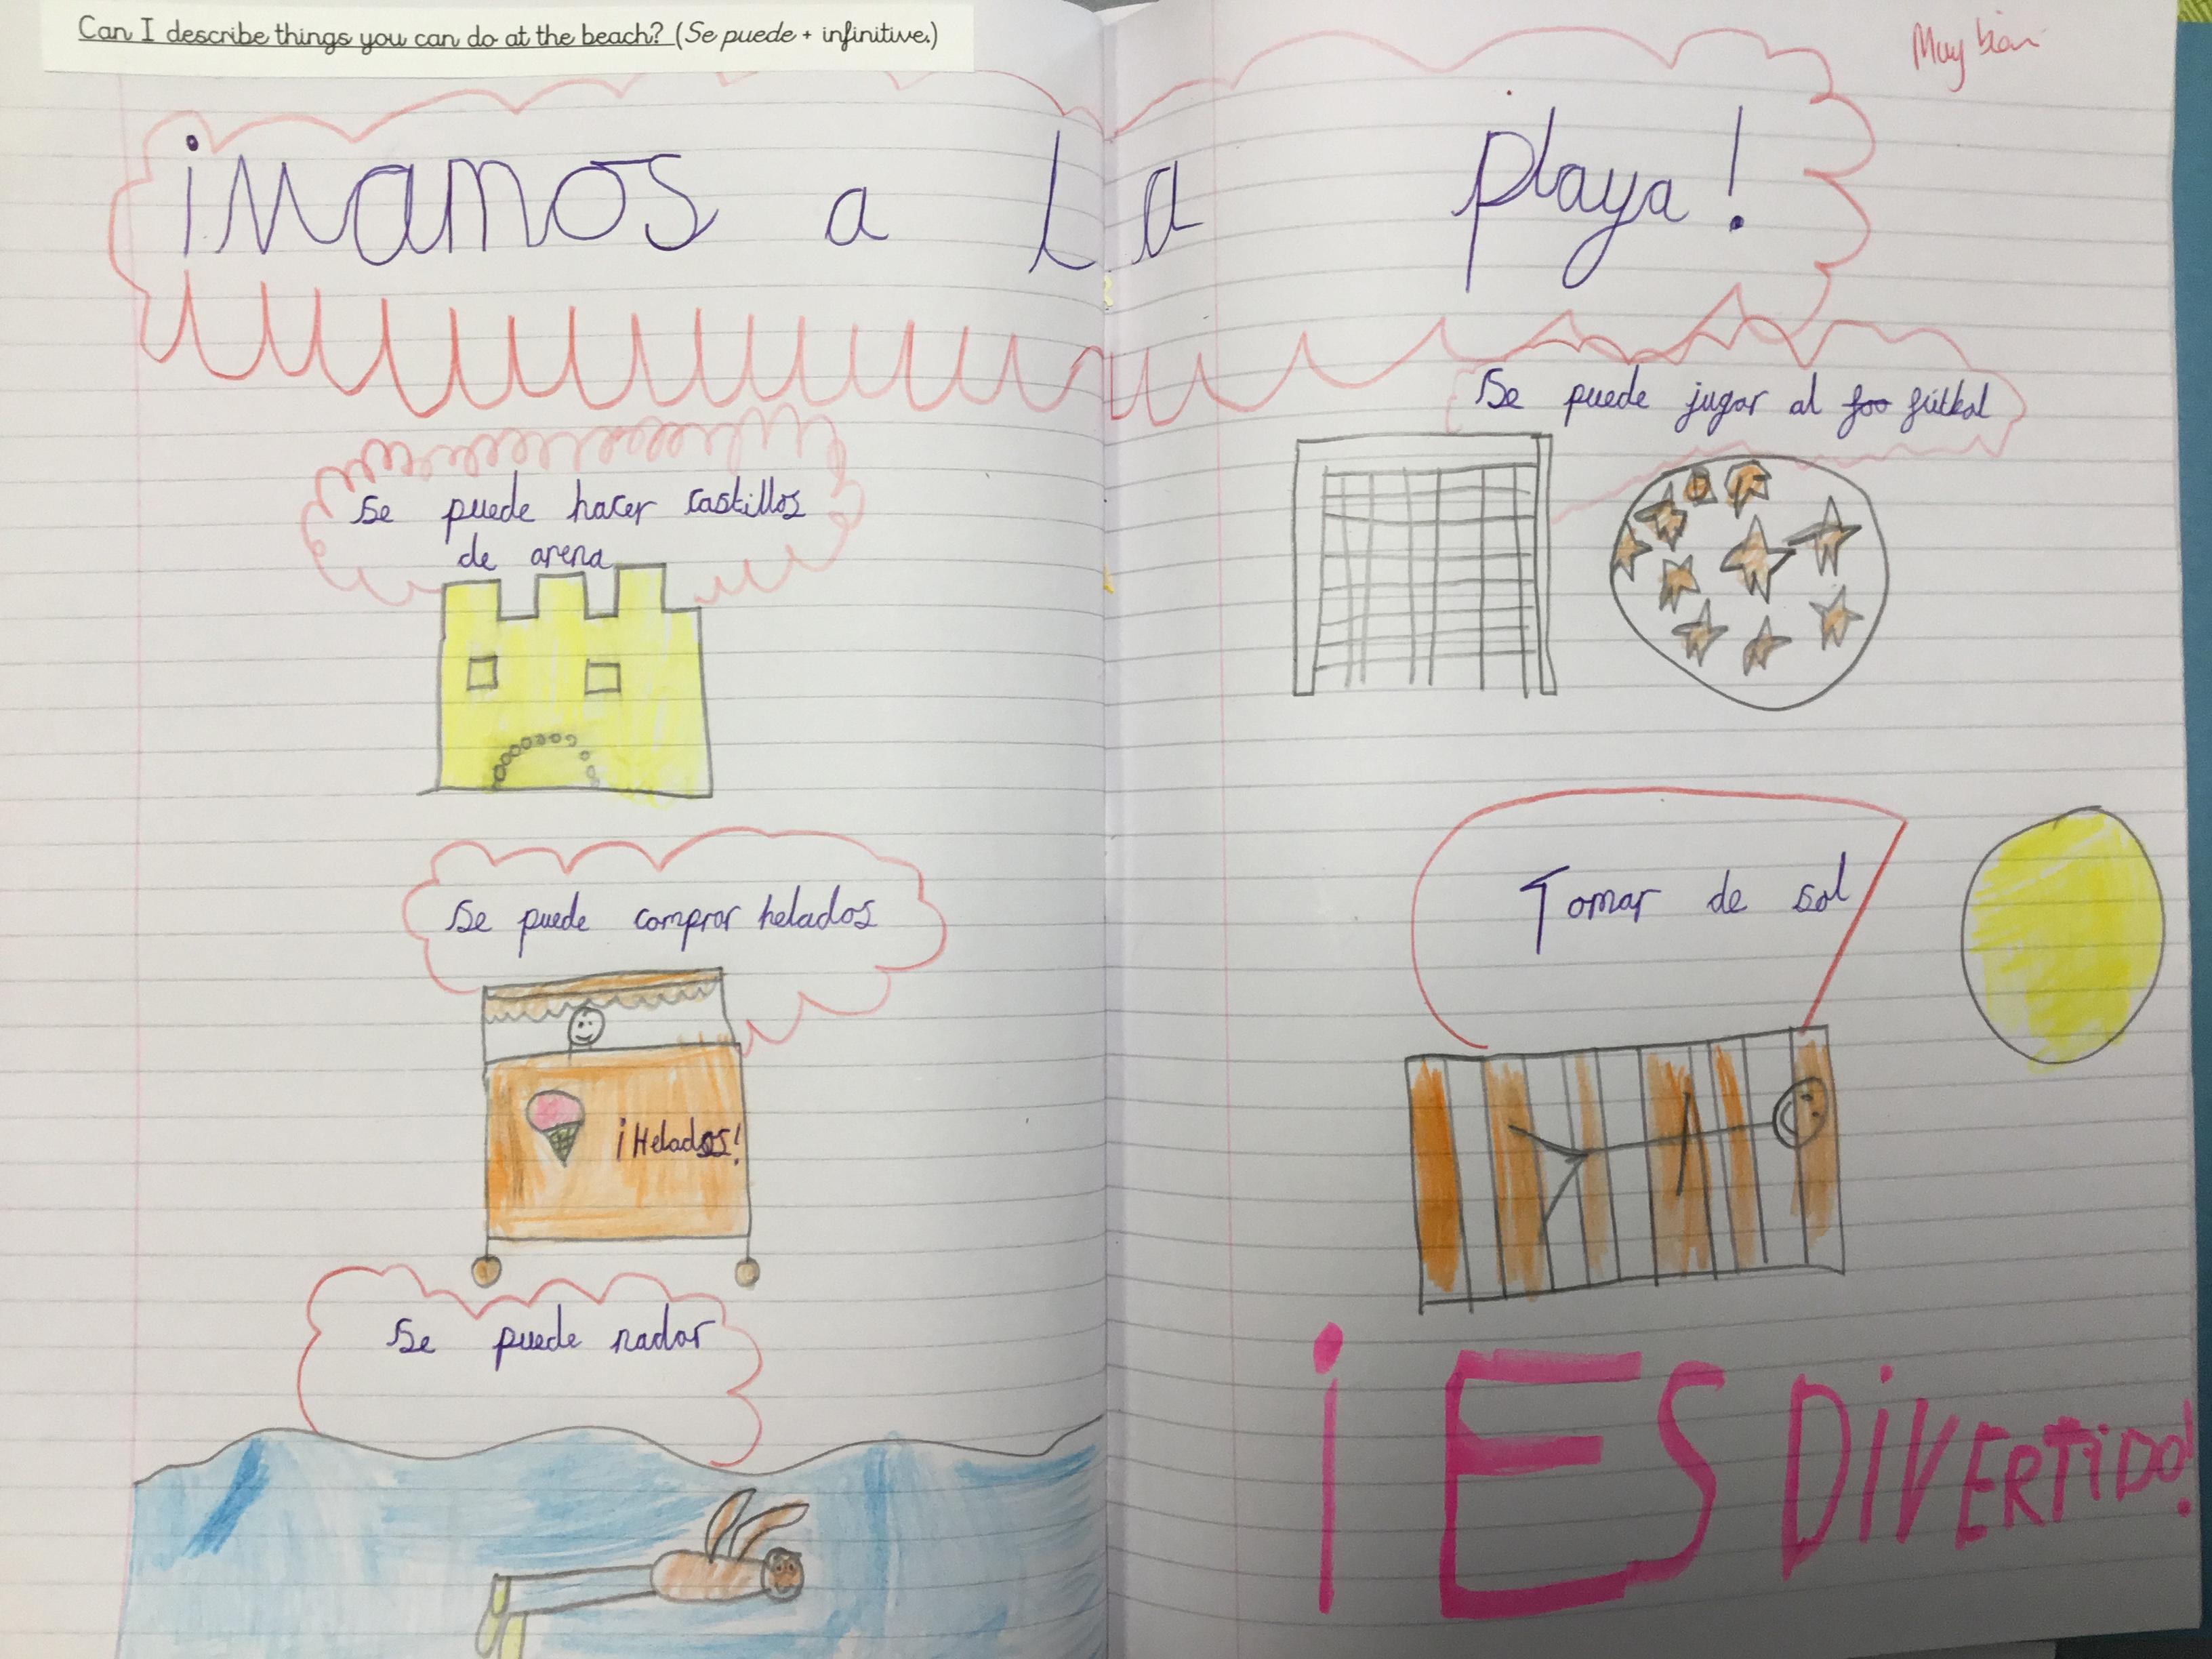 Can I describe things you can do at the beach? (Se puede + infinitive.)
Muy bien
¡Vamos a la playa!
Se puede hacer castillos
de arena
Se puede comprar helados
¡Helados!
Se puede nadar
Se puede jugar al foo fútbol
Tomar de sol
¡ES DiVERTiDO!